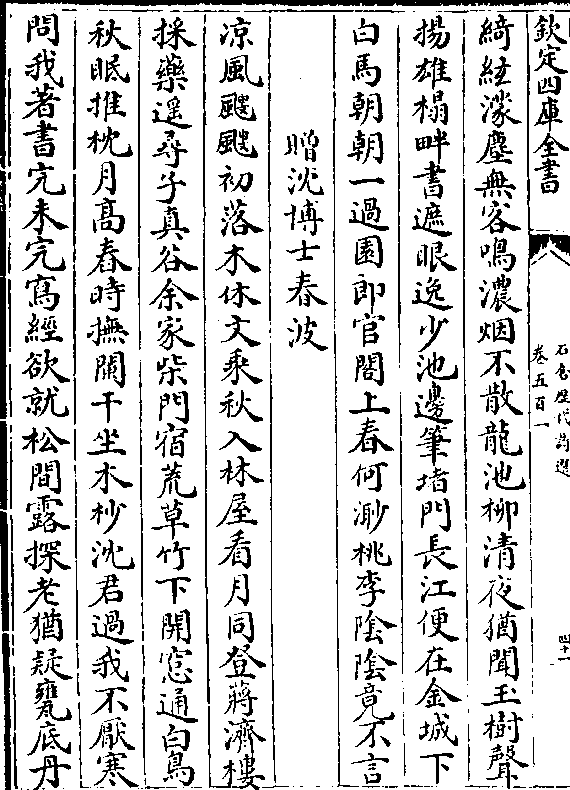 欽定四庫全書
石倉歷代詩選
卷五百一
四十一
綺絃濛塵無客鳴濃烟不散龍池柳清夜猶聞玉樹聲
揚雄榻畔書遮眼逸少池邊筆堵門長江便在金城下
白馬朝朝一過園郎官閣上春何渺桃李陰陰竟不言
贈沈博士春波
凉風颸颸初落木休文乘秋入林屋看月同登蔣濟樓
採藥遥尋子真谷余家柴門宿荒草竹下開窓通白鳥
秋眠推枕月髙舂時撫闌干坐木杪沈君過我不厭寒
問我著書完未完寫經欲就松間露探老猶疑甕底丹